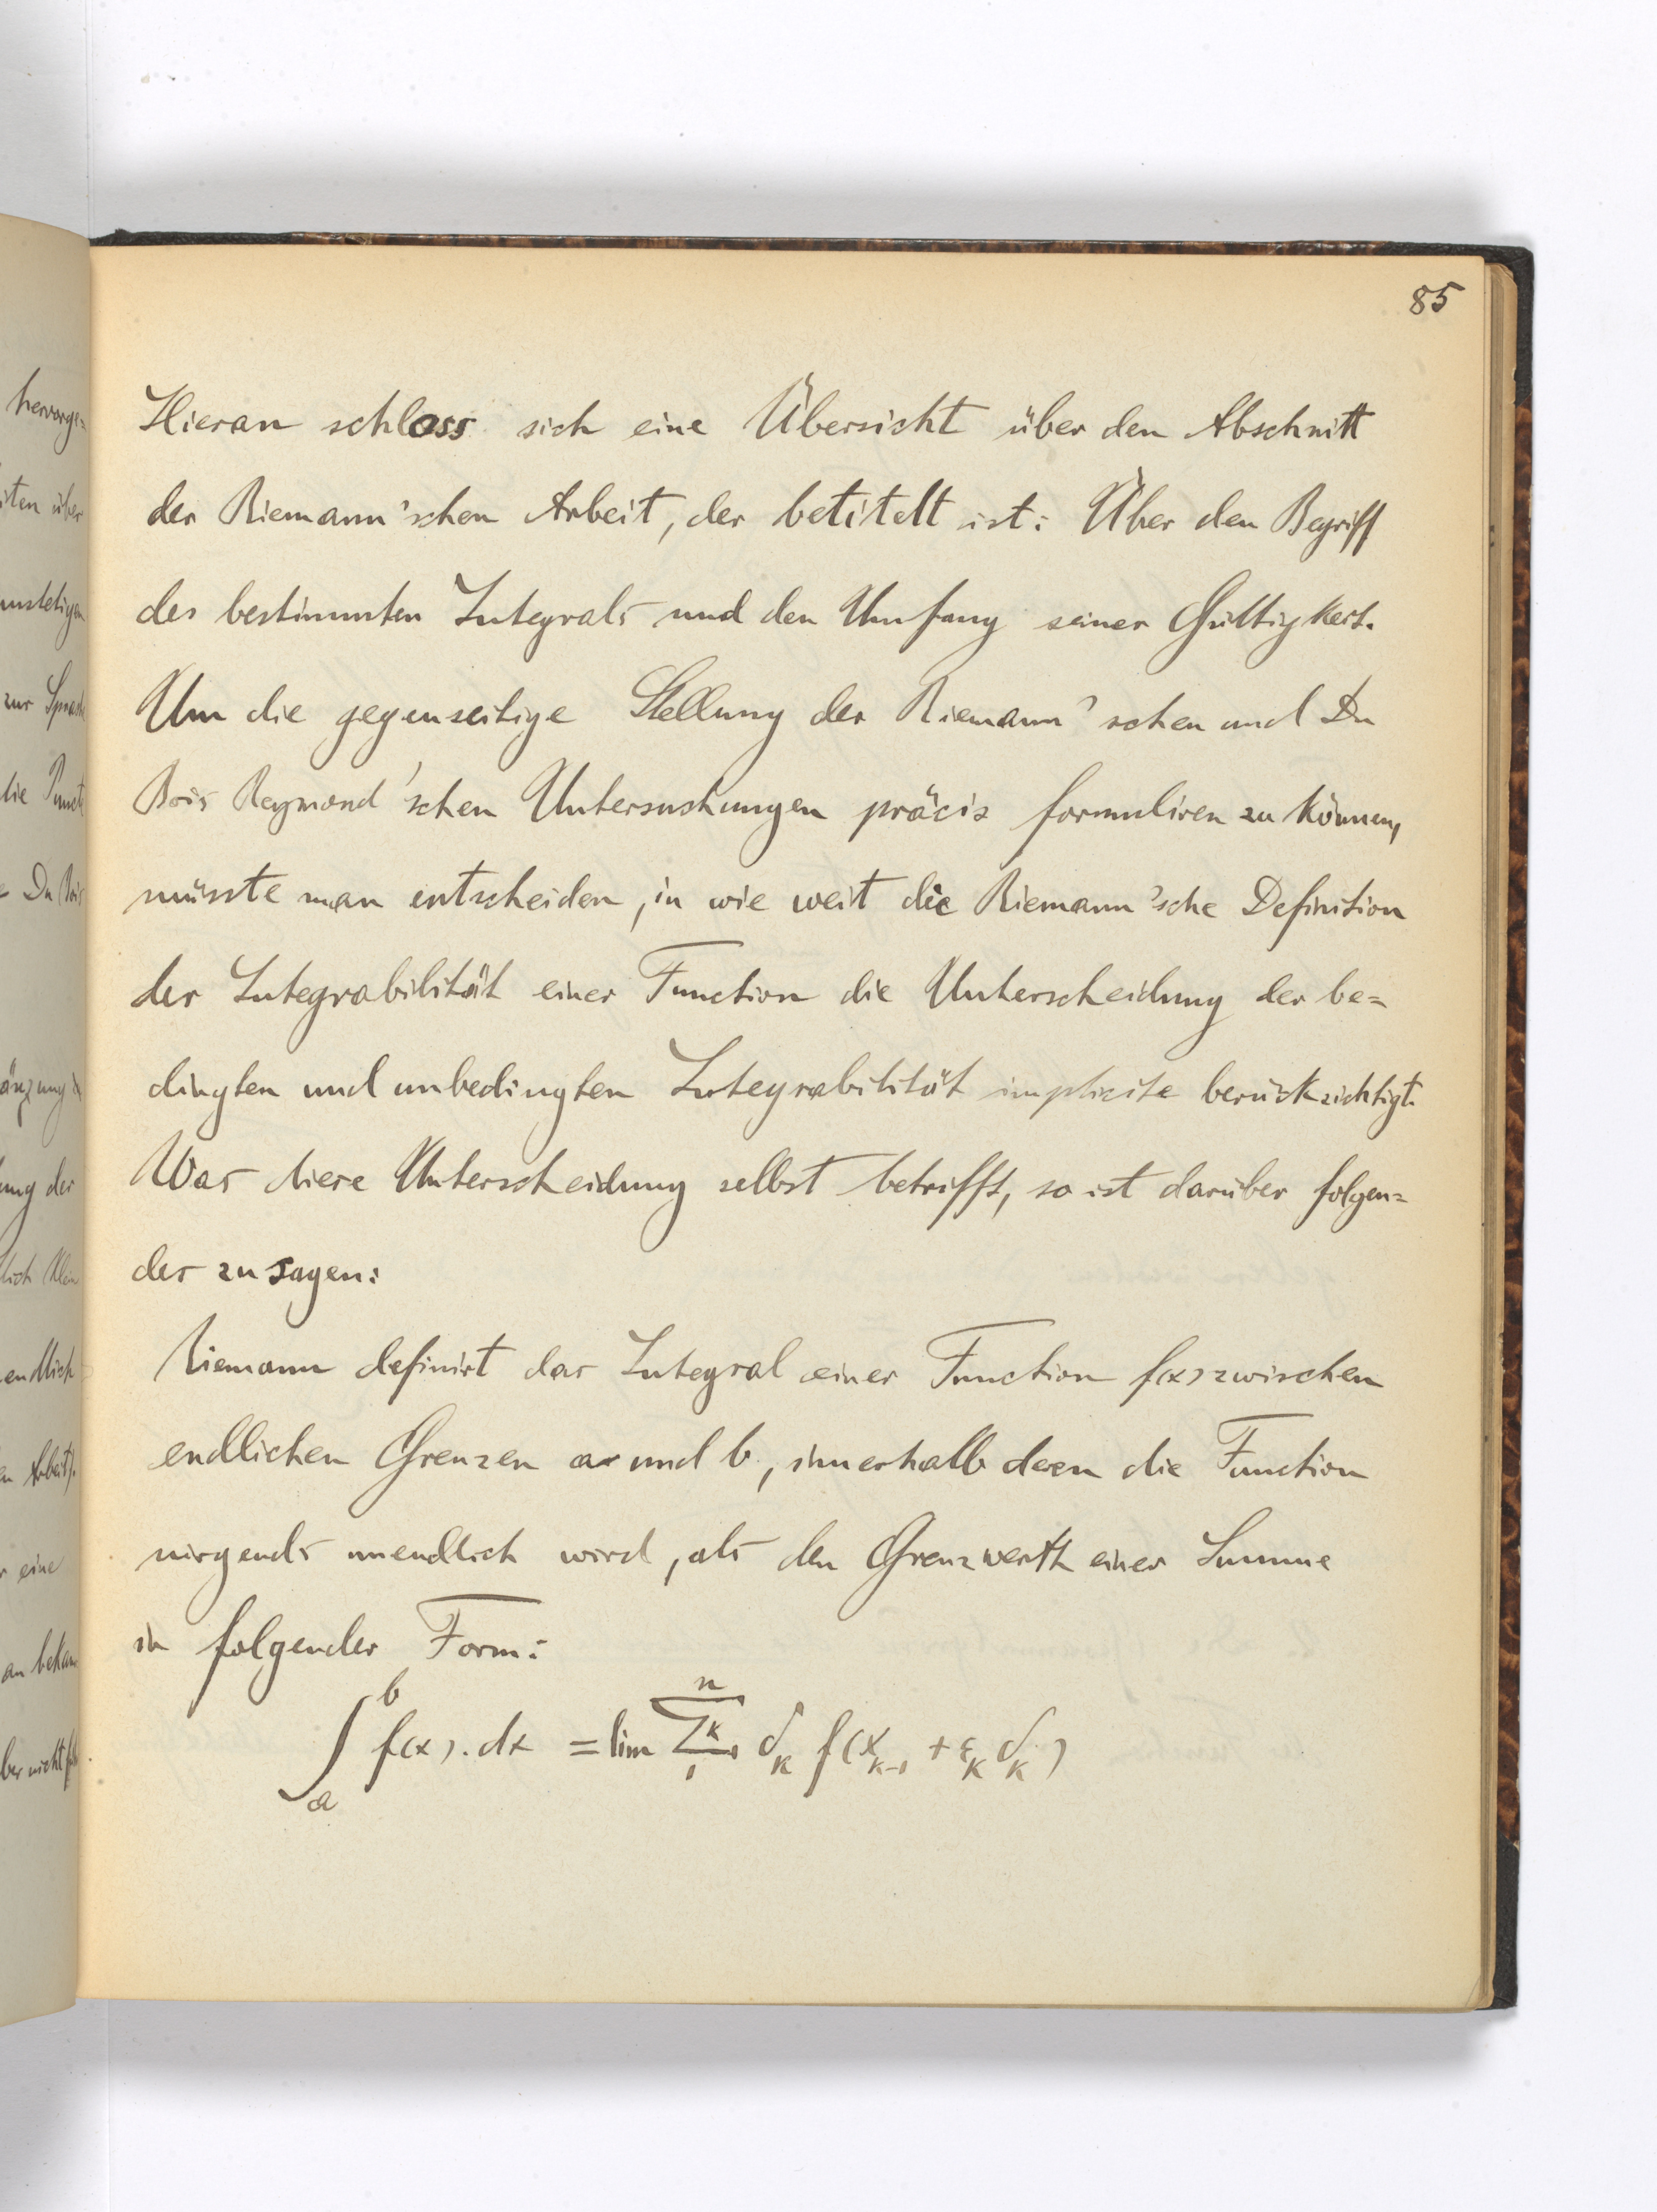 85
Hieran schloss sich eine Übersicht über den Abschnitt
der Riemann'schen Arbeit, der betitelt ist: Über den Begriff
des bestimmten Integrals und den Umfang seiner Gültigkeit.
Um die gegenseitige Stellung der Riemann'schen und Du
Bois Reymond'schen Untersuchungen präcis formuliren zu können,
müsste man entscheiden, in wie weit die Riemann'sche Definition
der Integrabilität einer Function die Unterscheidung der be=
dingten und unbedingten Integrabilität implicite berücksichtigt.
Was diese Unterscheidung selbst betrifft, so ist darüber folgen=
des zu sagen:
Riemann definirt das Integral einer Function f(x) zwischen
endlichen Grenzen a und b, innerhalb deren die Function
nirgends unendlich wird, als den Grenzwerth einer Summe
in folgender Form:
∫_a^b f(x). dx = lim Σ_1^n k δ_k f(x_{k-1} + ε_k δ_k)
hervorge=
iten über
unstetigen
zur Sprache
die Puncte
Du Bois
änzung
ung der
lich klein
endlich
en Arbeit).
r eine
an bekan
ber nicht